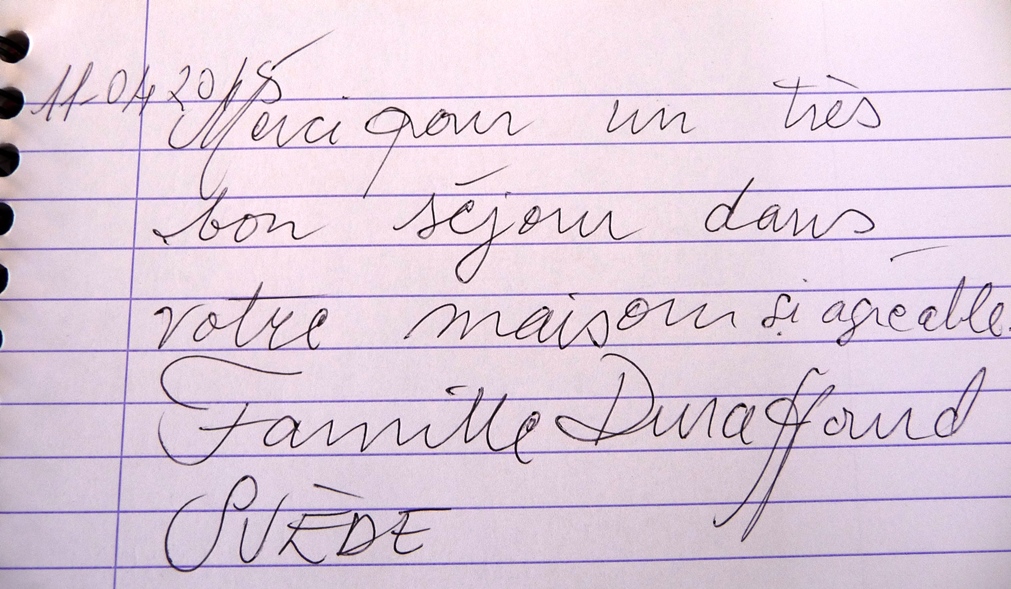 11-04 2015
Merci pour un très
bon séjour dans
votre maison si agréable.
Famille Duraffourd
SUÈDE